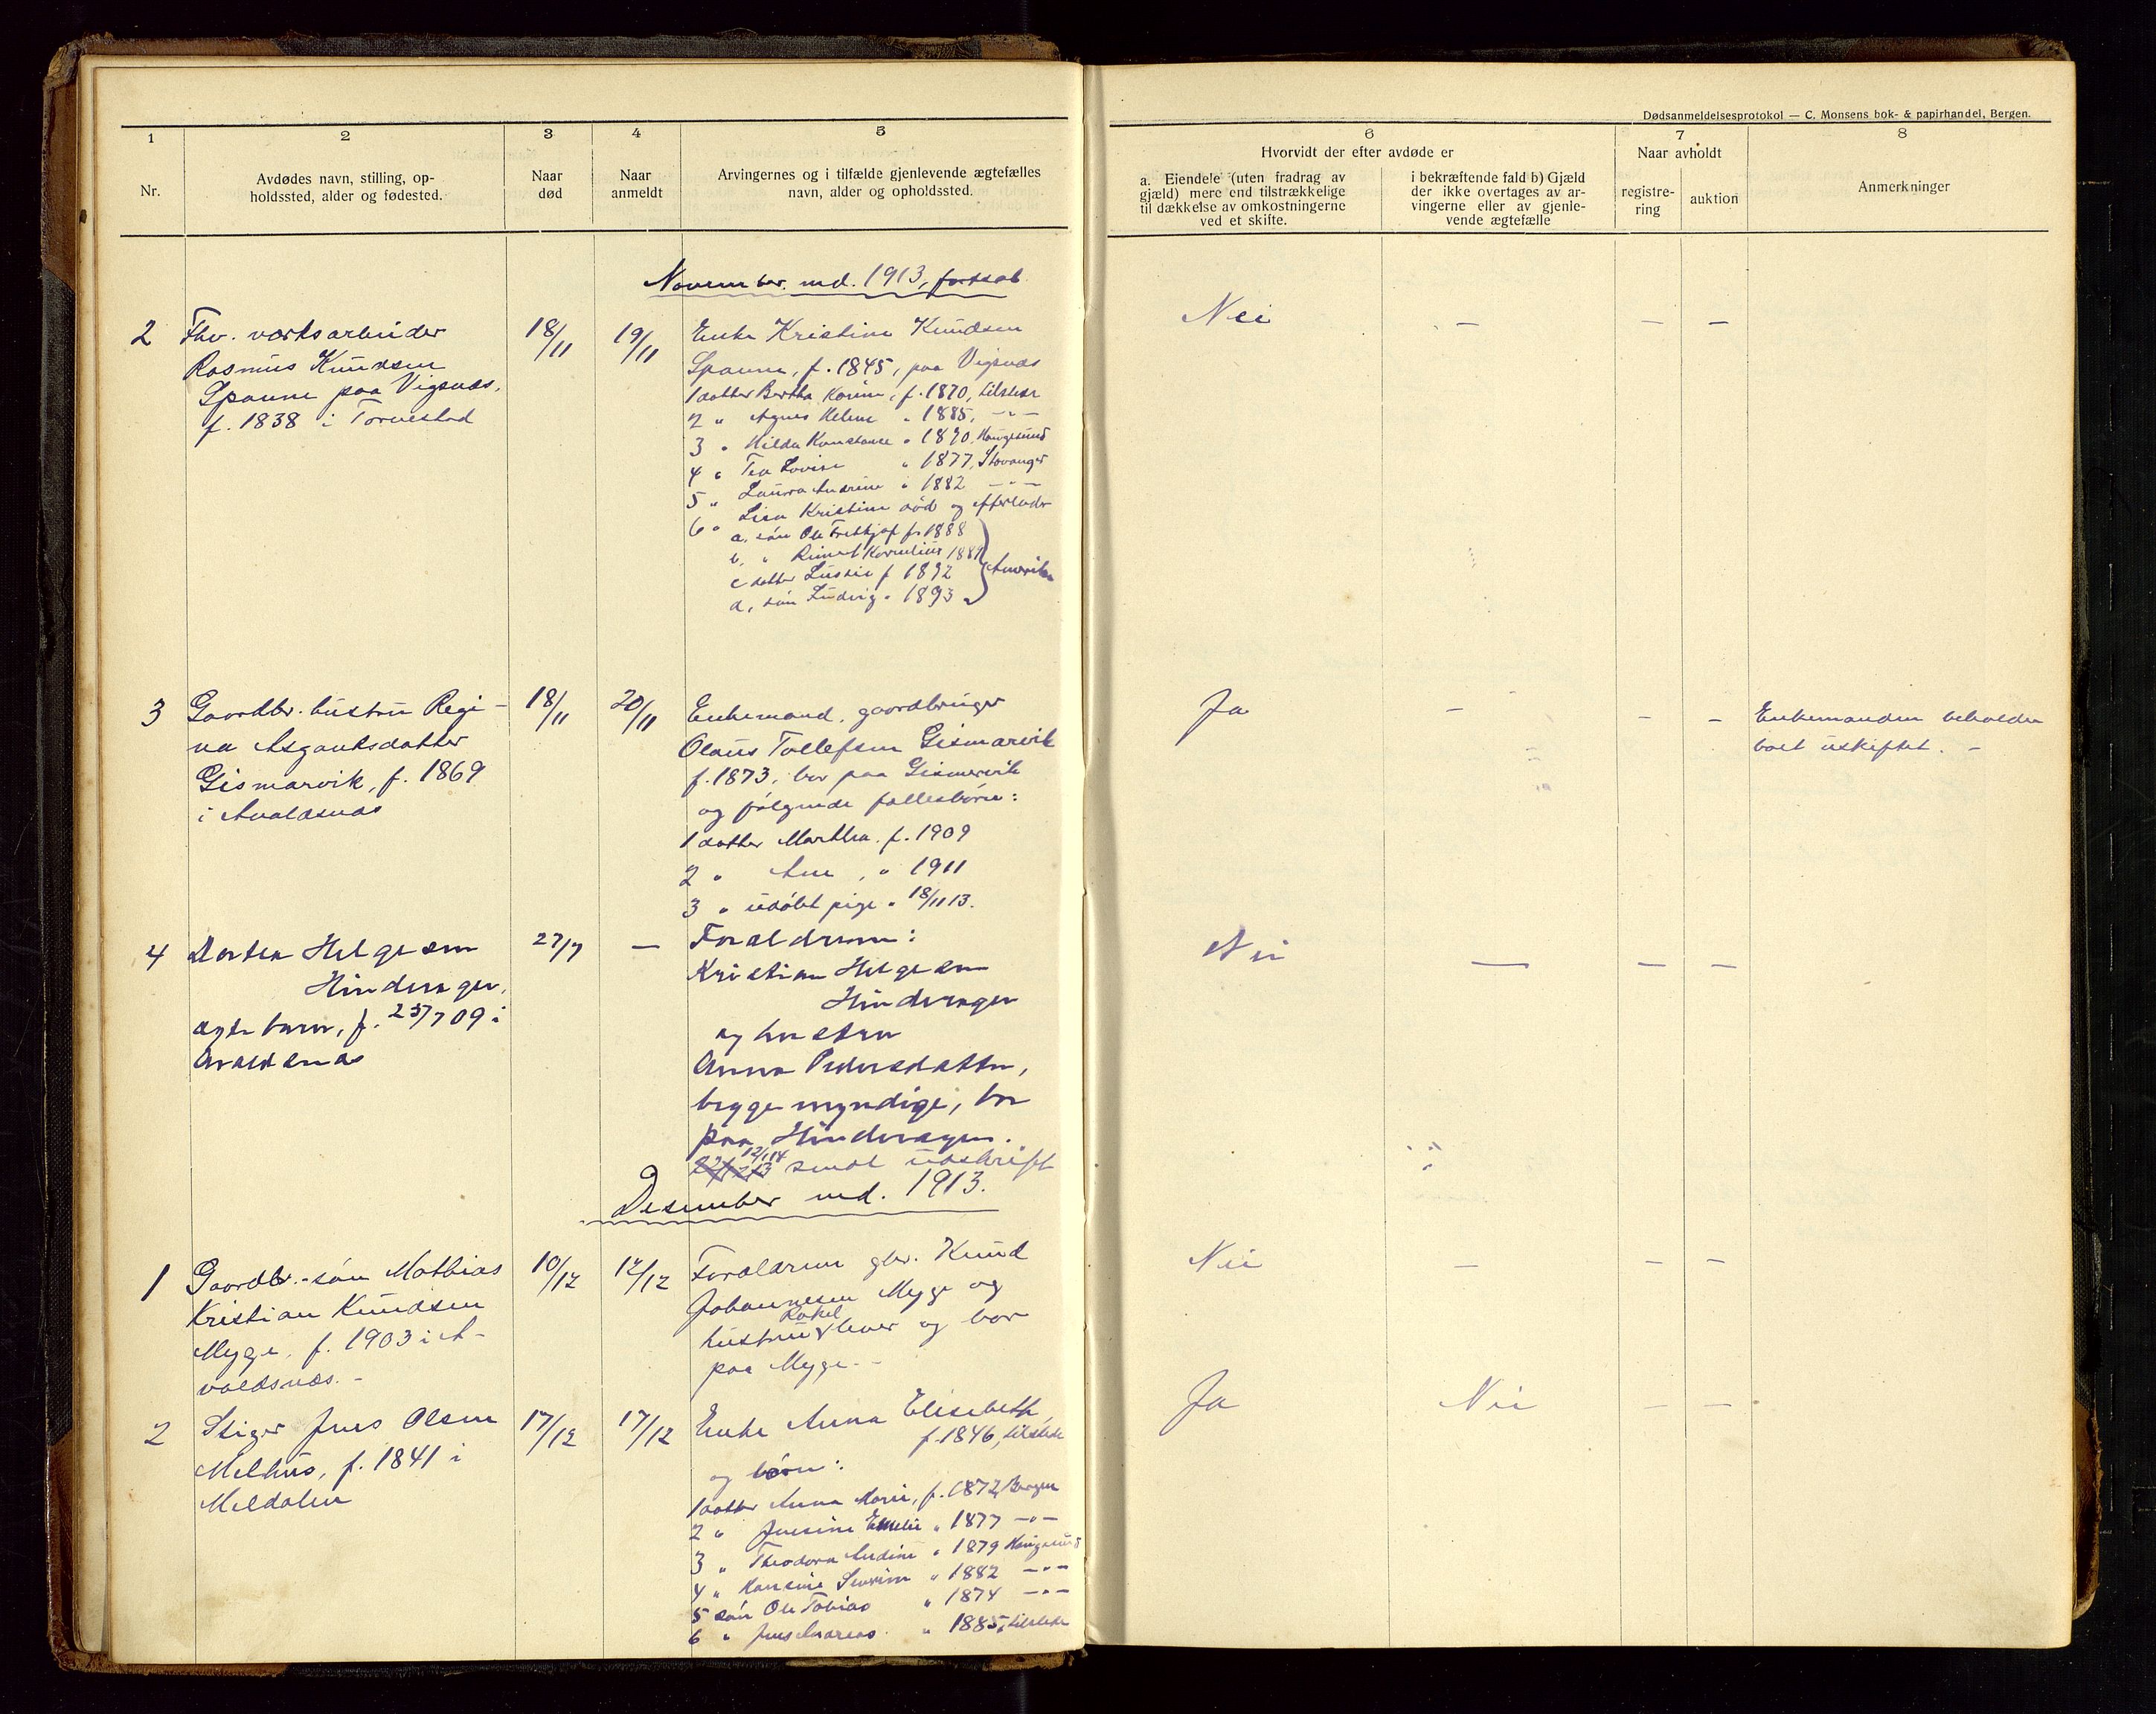 Dødsanmeldelsesprotokol — C. Monsens bok- & papirhandel, Bergen.
1 2 3 4 5 6 7 8
Nr.
Avdødes navn, stilling, op-
holdssted, alder og fødested.
Naar
død
Naar
anmeldt
Arvingernes og i tilfælde gjenlevende ægtefælles
navn, alder og opholdssted.
Hvorvidt der efter avdøde er
a. Eiendele (uten fradrag av
gjæld) mere end tilstrækkelige
til dækkelse av omkostningerne
ved et skifte.
i bekræftende fald b) Gjæld
der ikke overtages av ar-
vingerne eller av gjenle-
vende ægtefælle
Naar avholdt
registre-
ring
auktion
Anmerkninger
November md. 1913, fortsat
2
Fhv. værksarbeider
Rasmus Knudsen
Spanne paa Vigsnæs,
f. 1838 i Torvestad
18/11
19/11
Enke Kristine Knudsen
Spanne, f. 1845, paa Vigsnæs
1 datter Bertha Karine, f. 1870, tilstede
2 " Agnes Helene " 1885, -"-
3 " Hilda Konstance " 1890, Haugesund
4 " Tea Lovise " 1877, Stavanger
5 " Laura Andrine " 1882 -"-
6 " Lisa Kristine død og efterlader
a. søn Ole Fritkjof f. 1888
b. " Kornelius 1889
c datter f 1892
d. søn Ludvig " 1893
Amerika
Nei — — —
3
Gaardbr. hustru Regi-
na Asgautsdatter
Gismarvik, f. 1869
i Avaldsnæs
18/11
20/11
Enkemand, gaardbruger
Olaus Tollefsen Gismarvik
f. 1873, bor paa Gismarvik
og følgende fællesbørn:
1 datter Martha, f. 1909
2 " Ane, " 1911
3 " udøbt pige " 18/11 13.
Ja - - -
Enkemanden beholder
boet uskiftet. -
4
Dortea Helgesen
Hinderager,
ægte barn, f. 25/7 09 i
Avaldsnæs
27/7
—
Forældrene:
Kristian Helgesen
Hinderager
og hustru
Anna Pedersdatter,
begge myndige, bor
paa Hinderager.
12/1 14
sendt utskrift
Nei — — —
Desember md. 1913.
1
Gaardbr.-søn Mathias
Kristian Knudsen
Mygge, f. 1903 i A-
valdsnæs. -
10/12
12/12
Forældrene gbr. Knud
Johannesen Mygge og
Rakel
hustru lever og bor
paa Mygge. -
Nei — — —
2
Stiger Jens Olsen
Melhus, f. 1841 i
Meldalen
17/12
17/12
Enke Anna Elisabeth,
f. 1846, tilstede
og børn:
1 datter Anna Marie, f. 1872, Bergen
2 " Jensine Emelie " 1877 -"-
3 " Theodora Andine " 1879 Haugesund
4 " Hansine Severine " 1882 -"-
5 søn Ole Tobias " 1874 -"-
6 " Jens Andreas " 1885, tilstede
Ja Nei — —